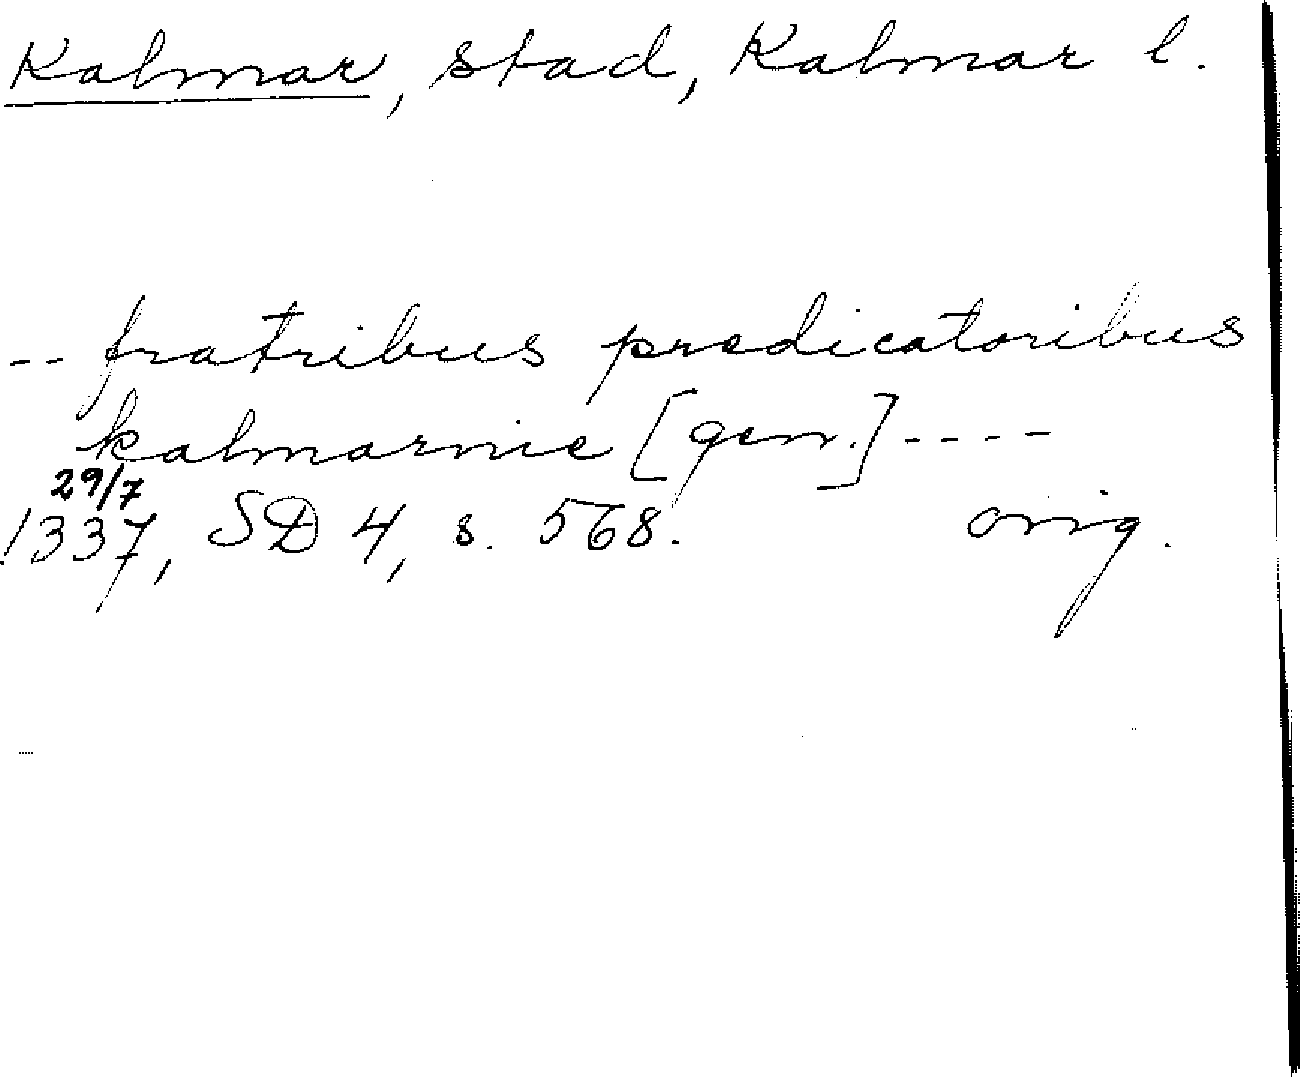 Kalmar, stad, Kalmar l.
-- fratribus predicatoribus
kalmarnie [gen.] ----
29/7
1337, SD 4, s. 568. orig.